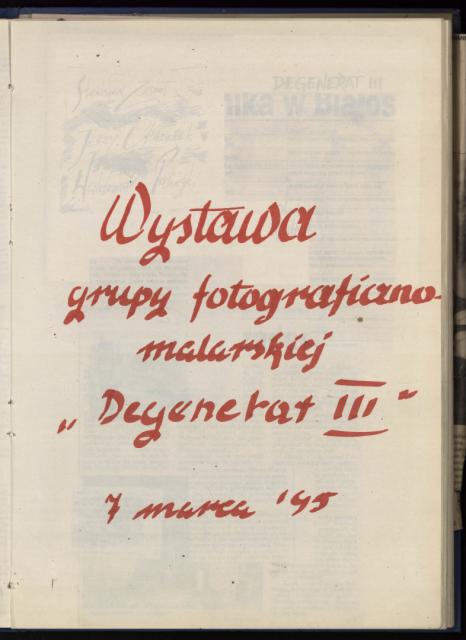 Wystawa
grupy fotograficzno-
malarskiej
„Degenerat III"
7 marca '95
DEGENERAT III